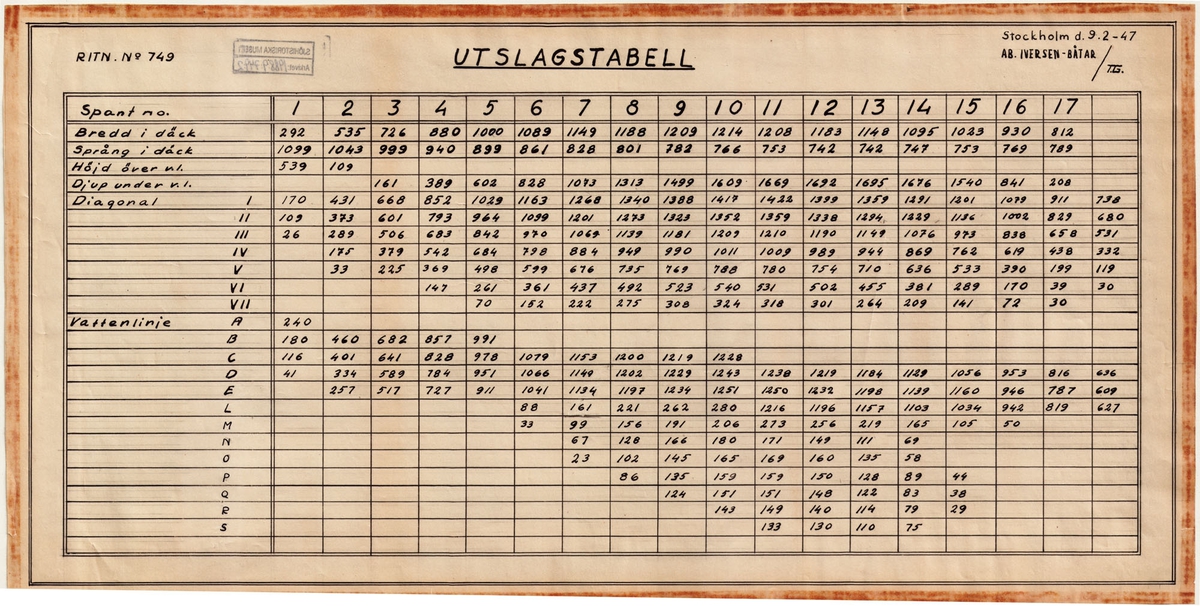 RITN. Nº 749
SJÖHISTORISKA MUSEET
UTSLAGSTABELL
Stockholm d. 9.2-47
AB. IVERSEN-BÅTAR
/T.G.
Spant no. 1 2 3 4 5 6 7 8 9 10 11 12 13 14 15 16 17
Bredd i däck 292 535 726 880 1000 1089 1149 1188 1209 1214 1208 1183 1148 1095 1023 930 812
Språng i däck 1099 1043 999 940 899 861 828 801 782 766 753 742 742 747 753 769 789
Höjd över v.l. 539 109
Djup under v.l. 161 389 602 828 1073 1313 1499 1609 1669 1692 1695 1676 1540 841 208
Diagonal I 170 431 668 852 1029 1163 1268 1340 1388 1417 1422 1399 1359 1291 1201 1079 911 738
II 109 373 601 793 964 1099 1201 1273 1323 1352 1359 1338 1294 1229 1136 1002 829 680
III 26 289 506 683 842 970 1069 1139 1181 1209 1210 1190 1149 1076 973 838 658 531
IV 175 379 542 684 798 884 949 990 1011 1009 989 944 869 762 619 438 332
V 33 225 369 498 599 676 735 769 788 780 754 710 636 533 390 199 119
VI 147 261 361 437 492 523 540 531 502 455 381 289 170 39 30
VII 70 152 222 275 308 324 318 301 264 209 141 72 30
Vattenlinje A 240
B 180 460 682 857 991
C 116 401 641 828 978 1079 1153 1200 1219 1228
D 41 334 589 784 951 1066 1149 1202 1229 1243 1238 1219 1184 1129 1056 953 816 636
E 257 517 727 911 1041 1134 1197 1234 1251 1250 1232 1198 1139 1160 946 787 609
L 88 161 221 262 280 1216 1196 1157 1103 1034 942 819 627
M 33 99 156 191 206 273 256 219 165 105 50
N 67 128 166 180 171 149 111 69
O 23 102 145 165 169 160 135 58
P 86 135 159 159 150 128 89 44
Q 124 151 151 148 122 83 38
R 143 149 140 114 79 29
S 133 130 110 75